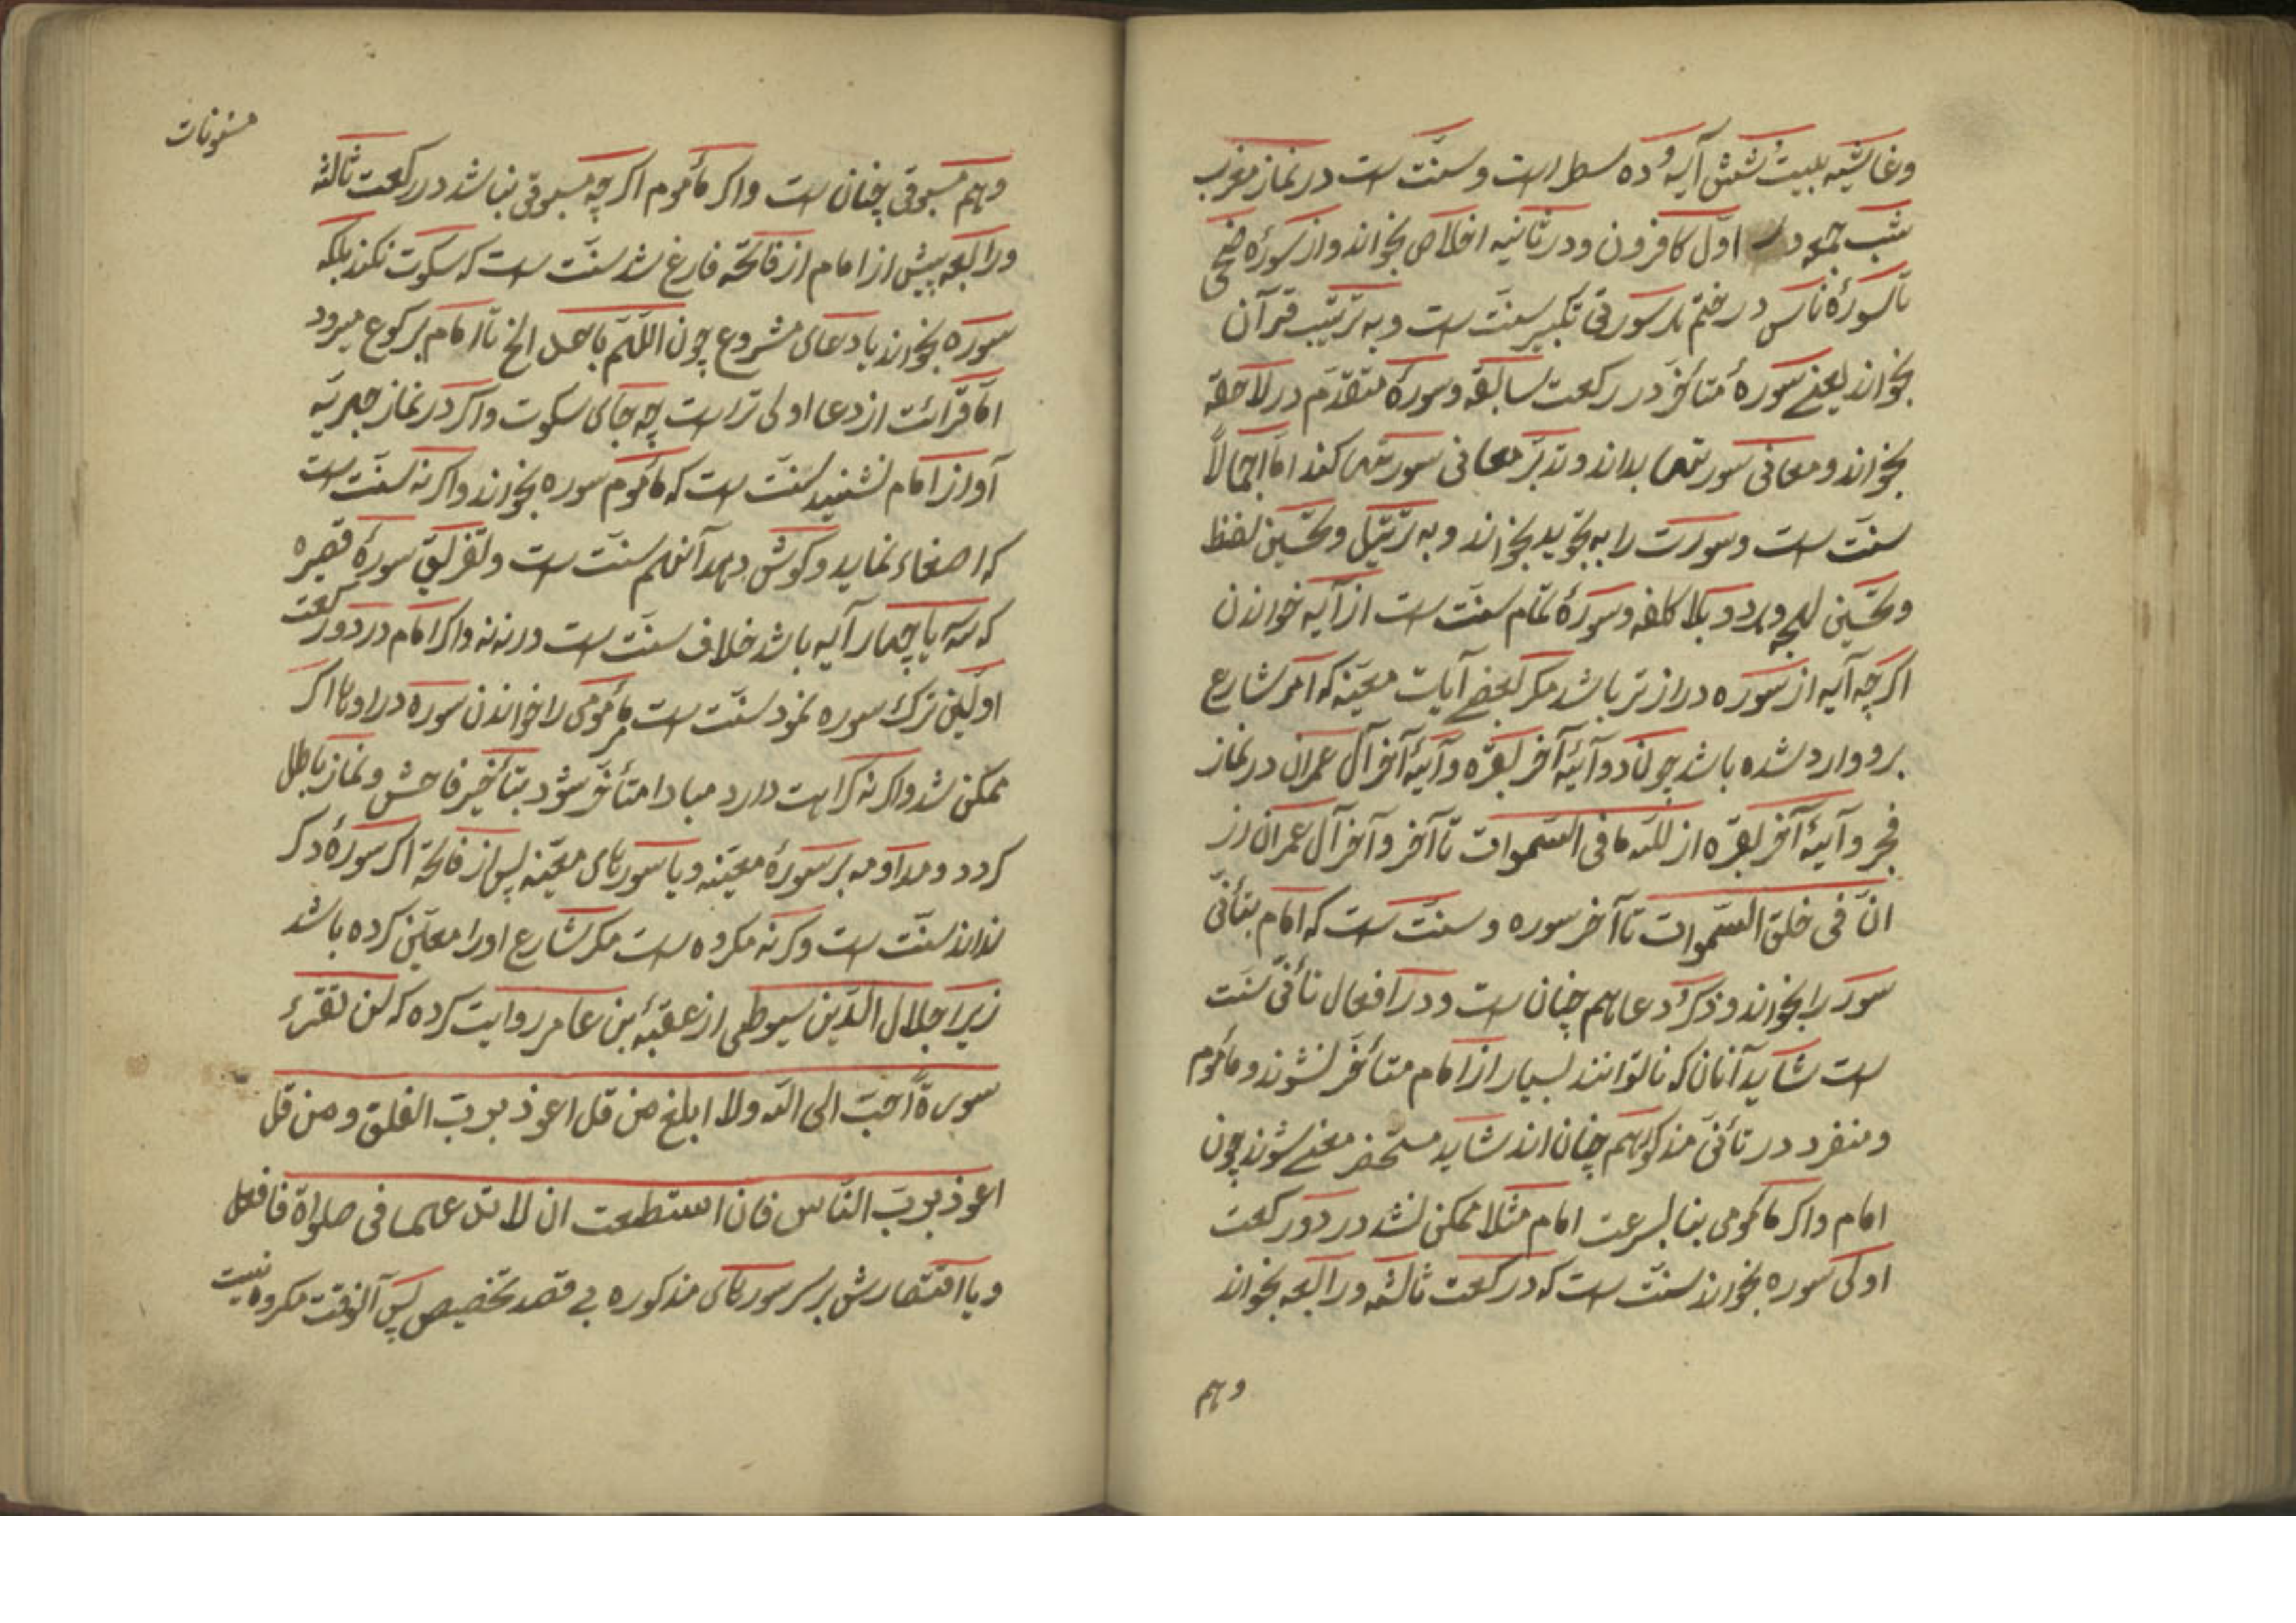 وغاشیه بیست وشش آیه وده سطر است وسنّت است در نماز مغرب
شب جمعه در اوّل کافرون ودر ثانیه اخلاص بخواند واز سورهٔ ضحی
تا سورهٔ ناس در ختم هر سورتی تکبیر سنّت است وبه ترتیب قرآن
بخواند یعنی سورهٔ متأخّر در رکعت سابقه وسورهٔ متقدّم در لاحقه
بخواند ومعانی سورتها بداند وتدبّر معانی سورتها کند امّا اجمالاً
سنّت است وسورت را به تجوید بخواند وبه ترتیل وتحسین لفظ
وتحسین لهجه وبلا کلفه وسورهٔ تمام سنّت است از آیه خواندن
اکرچه آیه از سوره درازتر باشد مکر بعضی آیات معیّنه که امر شارع
برو وارد شده باشد چون دو آیهٔ آخر بقره وآیهٔ آخر آل عمران در نماز
فجر وآیهٔ آخر بقره از للّه مافی السّموات تا آخر وآخر آل عمران از
انّ فی خلق السّموات تا آخر سوره وسنّت است که امام بتأنّی
سور را بخواند وذکر ودعا هم چنان است ودر افعال تأنّی سنّت
است شاید آنان که ناتوانند بسیار از امام متأخّر نشوند ومأموم
ومنفرد در تأنّی مذکور هم چنان اند شاید مستحضر معنی شوند چون
امام واکر مأمومی بنا بسرعت امام مثلا ممکن نشد در دو رکعت
اولی سوره بخواند سنّت است که در رکعت ثالثه ورابعه بخواند
وهم
مسنونات
وهم مسبوقی چنان است واکر مأموم اکرچه مسبوقی نباشد در رکعت ثالثه
ورابعه پیش از امام از فاتحه فارغ شد سنّت است که سکوت نکند بلکه
سوره بخواند یا دعای مشروع چون اللّهمّ باعد الخ تا امام برکوع میرود
امّا قرائت از دعا اولی تر است چه جای سکوت واکر در نماز جهریّه
آواز امام نشنید سنّت است که مأموم سوره بخواند واکرنه سنّت است
که اصغاء نماید وکوش دهد آنهم سنّت است وتفریق سورهٔ قصیره
که سه یا چهار آیه باشد خلاف سنّت است ورنه نه واکر امام در دو رکعت
اوّلین ترک سوره نمود سنّت است مر مأمومی را خواندن سوره در اوها اکر
ممکن شد واکرنه کراهت دارد مبادا متأخّر شود بتأخیر فاحش ونماز باطل
کردد ومداومه بر سورهٔ معیّنه ویا سورهای معیّنه پس از فاتحه اکر سورهٔ دکر
نداند سنّت است وکرنه مکروه است مکر شارع اورا معیّن کرده باشد
زیرا جلال الدّین سیوطی از عقبهٔ بن عامر روایت کرده که لن تقرء
سورةً احبّ الی اللّه ولا ابلغ من قل اعوذ بربّ الفلق ومن قل
اعوذ بربّ النّاس فان استطعت ان لا تدعهما فی صلواة فافعل
ویا اقتصارش بر سر سورهای مذکوره بی قصد تخصیص پس آنوقت مکروه نیست